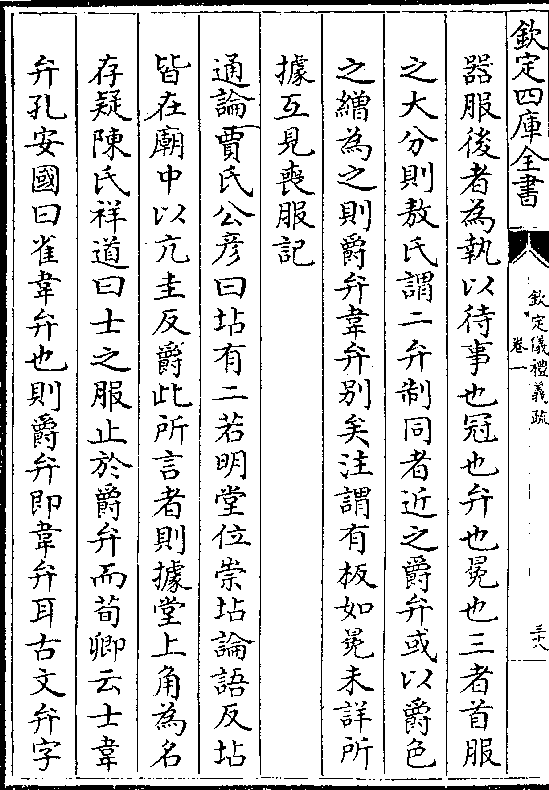 欽定四庫全書
欽定儀禮義疏
卷一
三十八
器服後者為執以待事也冠也弁也冕也三者首服
之大分則敖氏謂二弁制同者近之爵弁或以爵色
之繒為之則爵弁韋弁別矣注謂有板如冕未詳所
據互見喪服記
通論賈氏公彦曰坫有二若明堂位崇坫論語反坫
皆在廟中以亢圭反爵此所言者則據堂上角為名
存疑陳氏祥道曰士之服止於爵弁而荀卿云士韋
弁孔安國曰雀韋弁也則爵弁即韋弁耳古文弁字